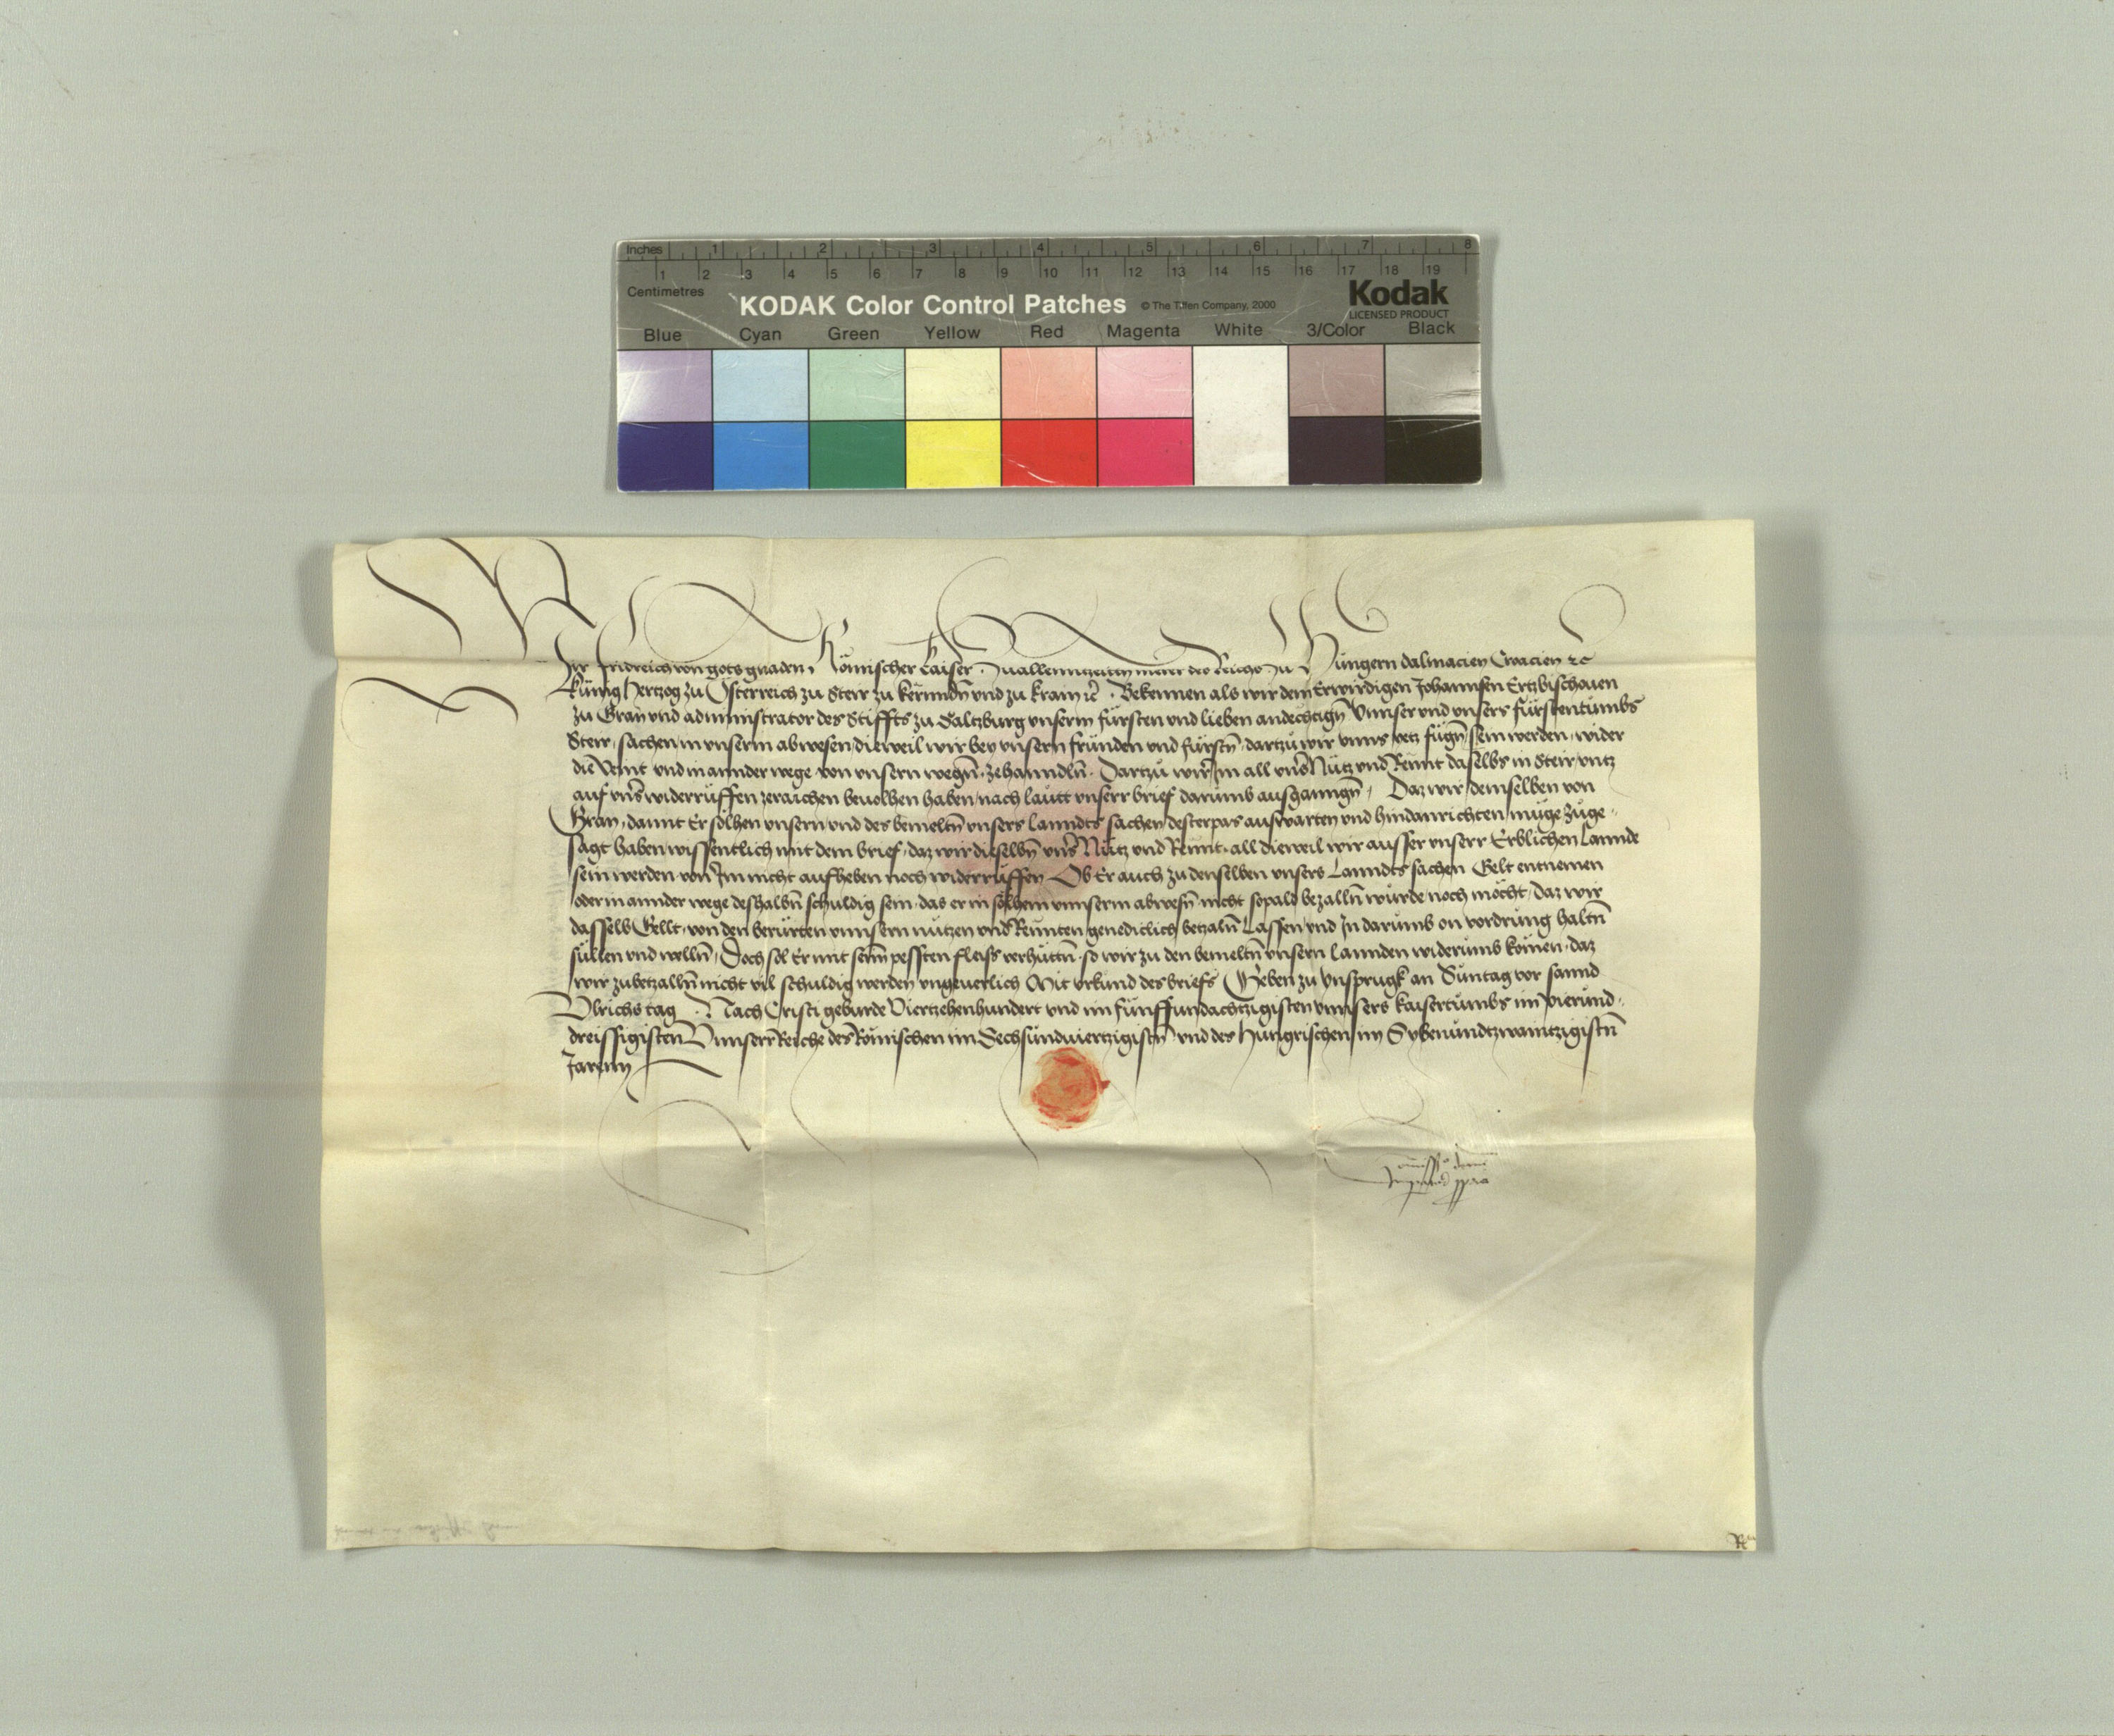 Inches 1 2 3 4 5 6 7 8
1 2 3 4 5 6 7 8 9 10 11 12 13 14 15 16 17 18 19
Centimetres
KODAK Color Control Patches © The Tiffen Company, 2000 Kodak
LICENSED PRODUCT
Blue Cyan Green Yellow Red Magenta White 3/Color Black
Wir Fridreich von gots gnaden Römischer Kaiser zu allenntzeiten merer des Reichs zu Hungern dalmacien Croacien ꝛc̄
Kunig Hertzog zu Österreich zu Steir zu kernndn̄ vnd zu krain ꝛc̄ . Bekennen als wir dem Erwirdigen Johannsen Ertzbischouen
zu Gran vnd administrator des Stiffts zu Saltzburg vnserm fürsten vnd lieben andechtign̄ vnnser vnd vnsers fürstentumbs
Steir sachen in vnserm abwesen dieweil wir bey vnsern frunden vnd fürstn̄ dartzu wir vnns yetz fügn̄ sein werden wider
die veint vnd in annder wege von vnsern wegn̄ zehanndln̄ . Dartzu wir Im all vns̄ Nütz vnd Rennt daselbs in Steir vntz
auf vns̄ widerrüffen zeraichen beuolhen haben nach lautt vnserr brief darumb ausganngn̄ Daz wir demselben von
Gran damit Er solhen vnsern vnd des bemeltn̄ vnsers lanndts sachen desterpas auswarten vnd hindanrichten müge züge⸗
sagt haben wissentlich mit dem brief daz wir dieselbn̄ vns̄ Nütz vnd Rennt all dieweil wir ausser vnserr Erblichen Lannde
sein werden von Im nicht aufheben noch widerrüffen Ob Er auch zu denselben vnsers Lanndts sachen Gelt entnemen
oder in annder wege deshalbn̄ schuldig sein das er in solhem vnnserm abwesn̄ nicht sopald bezalln̄ wurde noch möcht daz wir
dasselb Gellt von den berürten vnnsern nutzen vnd Rennten genediclich betzaln̄ Lassen vnd In darumb on vordrung haltn̄
süllen vnd welln̄ Doch sol Er mit seinm̄ pessten fleiss verhüttn̄ so wir zu den bemeltn̄ vnsern lannden widerumb komen daz
wir zubetzalln̄ nicht vil schuldig werden vngeuerlich Mit vrkund des briefs Geben zu Ynsprugk an Suntag vor sannd
Vlrichs tag . Nach Cristi geburde Viertzehenhundert vnd im fünffundachtzigisten vnnsers Kaisertumbs im vierund⸗
dreissigisten Vnnserr Reiche des Römischen im Sechsundviertzigistn̄ vnd des Hungrischen im Sybenundtzwaintzigistn̄
Jarenn